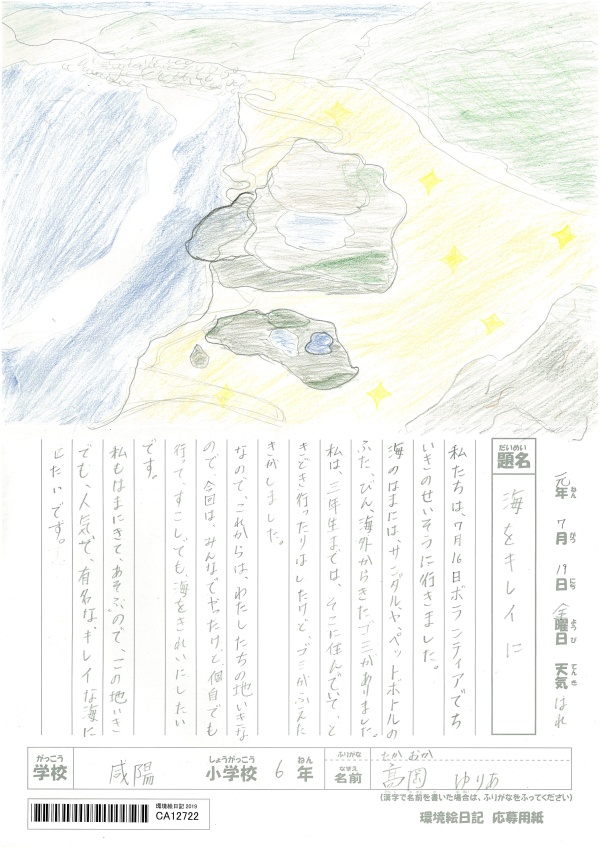 元年 7月 19日 金曜日 天気 はれ
ねん がつ にち ようび てんき
だいめい
題名 海をキレイに
私たちは、7月16日ボランティアでち
いきのせいそうに行きました。
海のはまには、サンダルや、ペットボトルの
ふた、びん、海外からきたゴミがありました。
私は、三年生までは、そこに住んでいて、と
きどき行ったりはしたけど、ゴミがふえた
きがしました。
なので、これからは、わたしたちの地いきな
ので、今回は、みんなでやったけど、個自でも
行って、すこしでも、海をきれいにしたい
です。
私もはまにきて、あそぶので、この地いき
でも、人気で、有名な、キレイな海に
したいです。
がっこう しょうがっこう ねん
学校 咸陽 小学校 6年
ふりがな たかおか
なまえ
名前 高岡 ゆりあ
(漢字で名前を書いた場合は、ふりがなをふってください)
環境絵日記2019
CA12722
環境絵日記 応募用紙